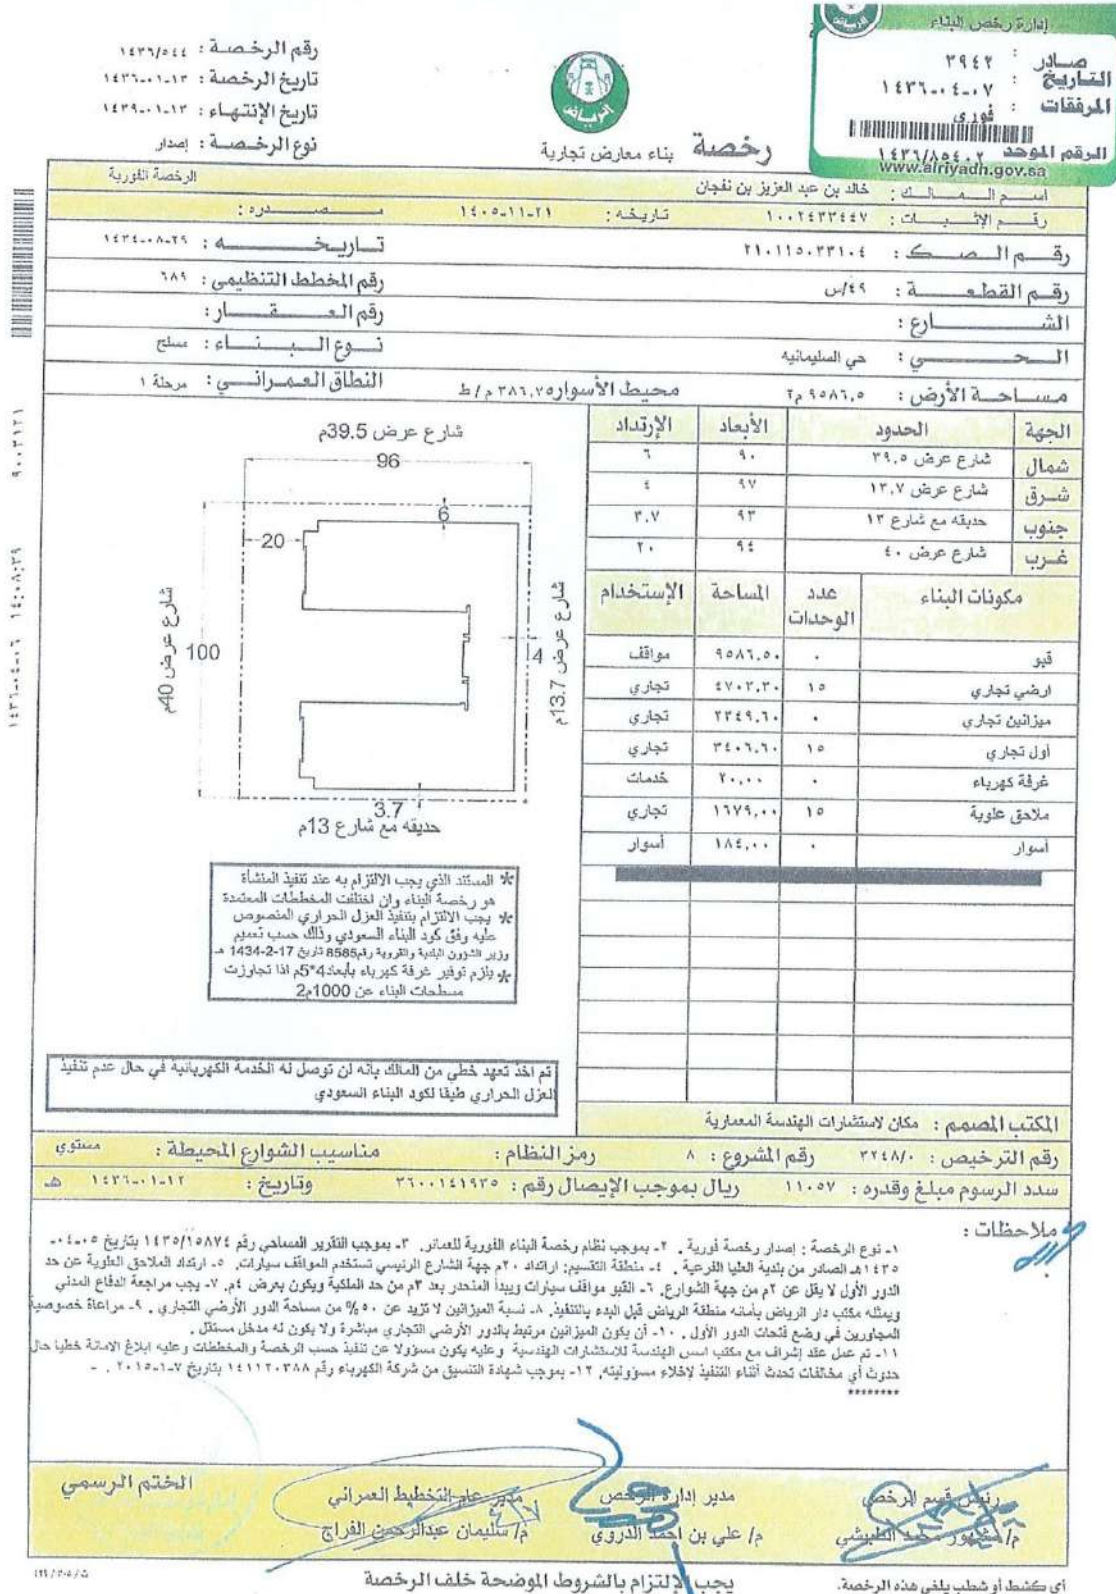 إدارة رخص البناء
صادر : ٣٩٤٢
التاريخ : ١٤٣٦-٠٤-٠٧
المرفقات : فوري
الرقم الموحد ١٤٣٦/٨٥٤٠٢
www.alriyadh.gov.sa
رقم الرخصة : ١٤٣٦/٥٤٤
تاريخ الرخصة : ١٤٣٦-٠١-١٣
تاريخ الإنتهاء : ١٤٣٩-٠١-١٣
نوع الرخصة : إصدار
الرياض
رخصة بناء معارض تجارية
اسم المالك : خالد بن عبد العزيز بن نفجان الرخصة الفورية
رقم الإثبات : ١٠٠٢٤٣٣٤٤٧ تاريخه : ١٤٠٥-١١-٢١ مصدره :
رقم الصك : ٢١٠١١٥٠٣٣١٠٤ تاريخه : ١٤٣٤-٠٨-٢٩
رقم القطعة : ٤٩/س رقم المخطط التنظيمي : ٦٨٩
الشارع : رقم العقار :
الحي : حي السليمانيه نوع البناء : مسلح
مساحة الأرض : ٩٥٨٦,٥ م٢ محيط الأسوار ٣٨٦,٧٥ م/ط النطاق العمراني : مرحلة ١
الجهة الحدود الأبعاد الإرتداد
شمال شارع عرض ٣٩,٥ ٩٠ ٦
شرق شارع عرض ١٣,٧ ٩٧ ٤
جنوب حديقه مع شارع ١٣ ٩٣ ٣,٧
غرب شارع عرض ٤٠ ٩٤ ٢٠
مكونات البناء عدد الوحدات المساحة الإستخدام
قبو ٠ ٩٥٨٦,٥٠ مواقف
ارضي تجاري ١٥ ٤٧٠٣,٣٠ تجاري
ميزانين تجاري ٠ ٢٣٤٩,٦٠ تجاري
أول تجاري ١٥ ٣٤٠٦,٦٠ تجاري
غرفة كهرباء ٠ ٢٠,٠٠ خدمات
ملاحق علوية ١٥ ١٦٧٩,٠٠ تجاري
أسوار ٠ ١٨٤,٠٠ أسوار
شارع عرض 39.5م
96
6
20
شارع عرض 40م
100
4
شارع عرض 13.7م
3.7
حديقه مع شارع 13م
* المستند الذي يجب الالتزام به عند تنفيذ المنشأة
هو رخصة البناء وان اختلفت المخططات المعتمدة
* يجب الالتزام بتنفيذ العزل الحراري المنصوص
عليه وفق كود البناء السعودي وذلك حسب تعميم
وزير الشؤون البلدية والقروية رقم8585 تاريخ 17-2-1434 هـ
* يلزم توفير غرفة كهرباء بأبعاد4*5م اذا تجاوزت
مسطحات البناء عن 1000م2
تم اخذ تعهد خطي من المالك بانه لن توصل له الخدمة الكهربائية في حال عدم تنفيذ
العزل الحراري طبقا لكود البناء السعودي
المكتب المصمم : مكان لاستشارات الهندسة المعمارية
رقم الترخيص : ٣٢٤٨/٠ رقم المشروع : ٨ رمز النظام : مناسيب الشوارع المحيطة : مستوي
سدد الرسوم مبلغ وقدره : ١١٠٥٧ ريال بموجب الإيصال رقم : ٣٦٠٠١٤١٩٣٥ وتاريخ : ١٤٣٦-٠١-١٢ هـ
ملاحظات :
١- نوع الرخصة : إصدار رخصة فورية . ٢- بموجب نظام رخصة البناء الفورية للعمائر. ٣- بموجب التقرير المساحي رقم ١٤٣٥/١٥٨٧٤ بتاريخ ٠٥-٠٤-
١٤٣٥هـ الصادر من بلدية العليا الفرعية . ٤- منطقة التقسيم: ارتداد ٢٠م جهة الشارع الرئيسي تستخدم المواقف سيارات. ٥- ارتداد الملاحق العلوية عن حد
الدور الأول لا يقل عن ٢م من جهة الشوارع. ٦- القبو مواقف سيارات ويبدأ المنحدر بعد ٣م من حد الملكية ويكون بعرض ٤م. ٧- يجب مراجعة الدفاع المدني
ويمثله مكتب دار الرياض بأمانه منطقة الرياض قبل البدء بالتنفيذ. ٨- نسبة الميزانين لا تزيد عن ٥٠% من مساحة الدور الأرضي التجاري . ٩- مراعاة خصوصية
المجاورين في وضع فتحات الدور الأول . ١٠- أن يكون الميزانين مرتبط بالدور الأرضي التجاري مباشرة ولا يكون له مدخل مستقل .
١١- تم عمل عقد إشراف مع مكتب اسس الهندسة للاستشارات الهندسية وعليه يكون مسؤولا عن تنفيذ حسب الرخصة والمخططات وعليه ابلاغ الامانة خطيا حال
حدوث أي مخالفات تحدث أثناء التنفيذ لإخلاء مسؤوليته. ١٢- بموجب شهادة التنسيق من شركة الكهرباء رقم ١٤١١٢٠٣٨٨ بتاريخ ٧-١-٢٠١٥ . -
********
رئيس قسم الرخص مدير إدارة الرخص مدير عام التخطيط العمراني الختم الرسمي
م/ مشهور محمد الطبيشي م/ علي بن احمد الدروي م/ سليمان عبدالرحمن الفراج
أي كشط أو شطب يلغي هذه الرخصة. يجب الإلتزام بالشروط الموضحة خلف الرخصة
٩٠٠٣١٢١ ١٤:٠٨:٣٩ ١٤٣٦-٠٤-٠٦